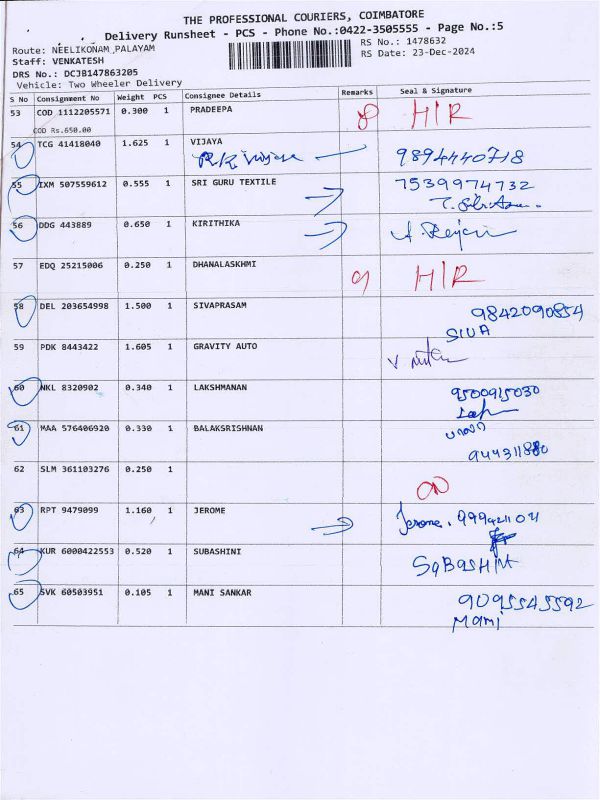 THE PROFESSIONAL COURIERS, COIMBATORE
Delivery Runsheet - PCS - Phone No.:0422-3505555 - Page No.:5
Route: NEELIKONAM PALAYAM
RS No.: 1478632
Staff: VENKATESH
RS Date: 23-Dec-2024
DRS No.: DCJB147863205
Vehicle: Two Wheeler Delivery
S No Consignment No Weight PCS Consignee Details Remarks Seal & Signature
53 COD 1112205571 0.300 1 PRADEEPA H/R
COD Rs.650.00
54 TCG 41418040 1.625 1 VIJAYA
9894440718
55 IXM 507559612 0.555 1 SRI GURU TEXTILE 7539974732
56 DDG 443889 0.650 1 KIRITHIKA
57 EDQ 25215006 0.250 1 DHANALASKHMI H/R
58 DEL 203654998 1.500 1 SIVAPRASAM 9842090854
SIVA
59 PDK 8443422 1.605 1 GRAVITY AUTO
60 NKL 8320902 0.340 1 LAKSHMANAN 9500915030
61 MAA 576406920 0.330 1 BALAKSRISHNAN
62 SLM 361103276 0.250 1
63 RPT 9479099 1.160 1 JEROME Jerome.
64 KUR 6000422553 0.520 1 SUBASHINI
65 SVK 60503951 0.105 1 MANI SANKAR 9095545592
Mani